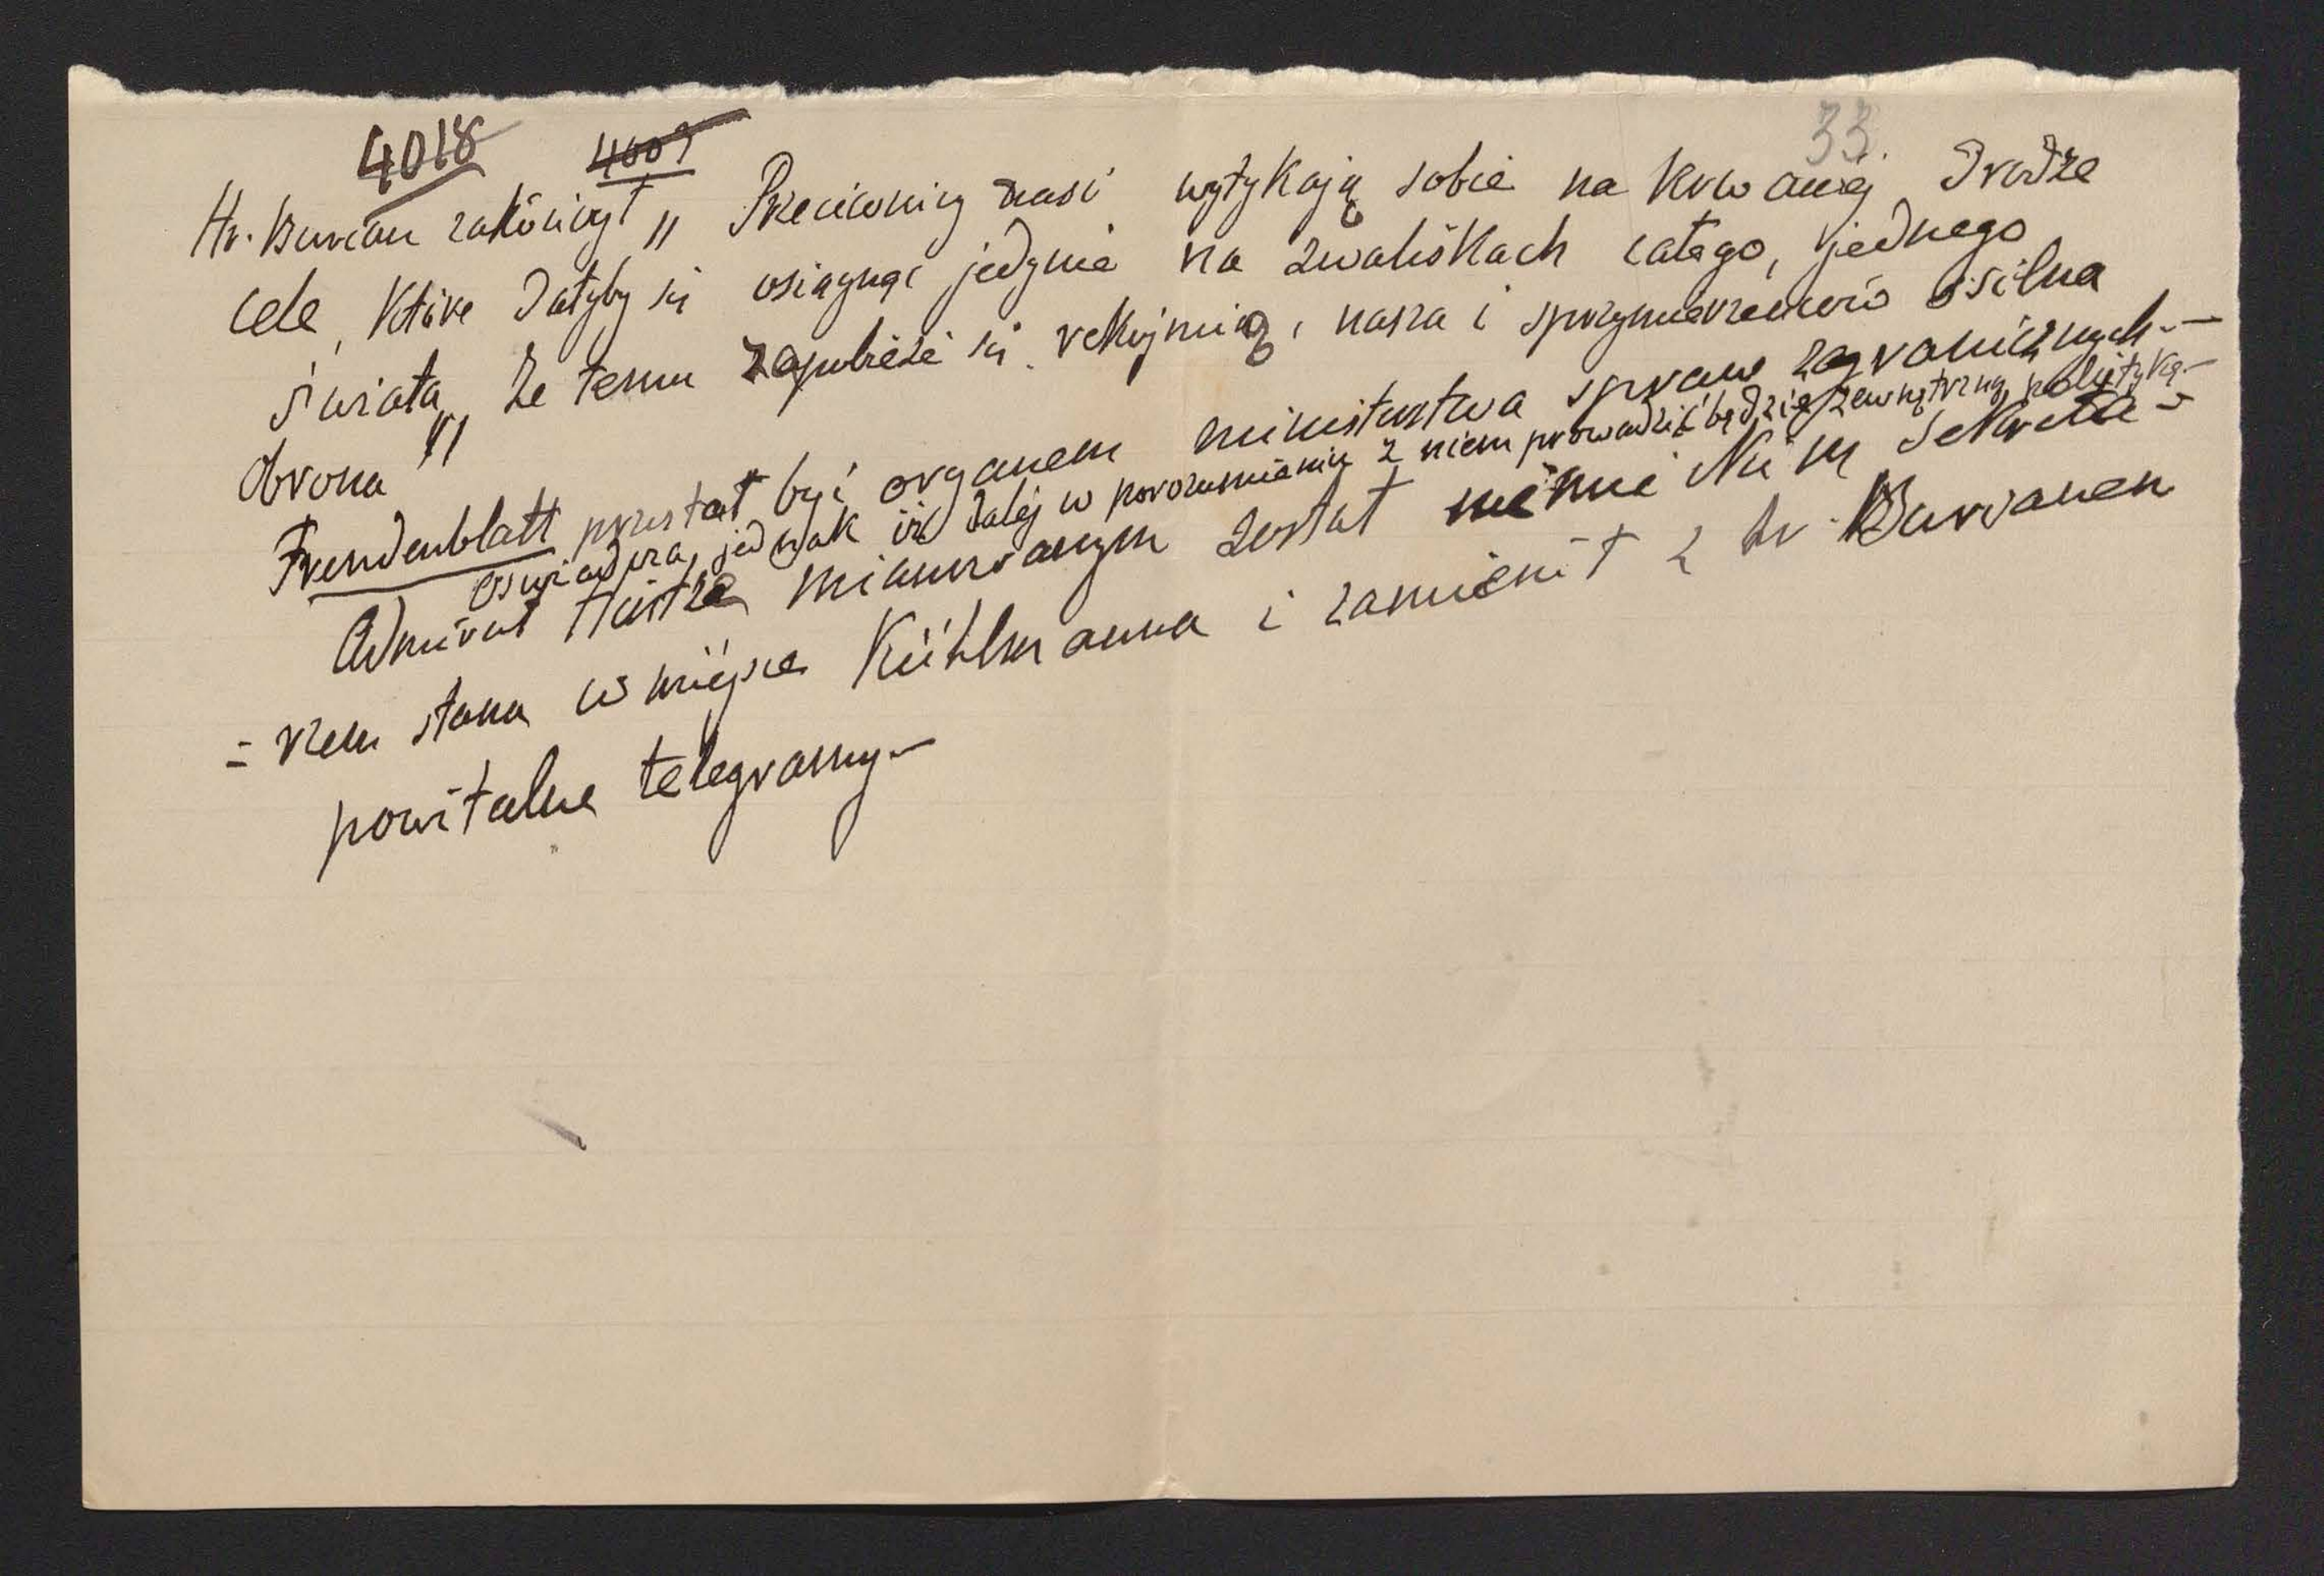 4018 4009 33.
Hr. Burian zakończył „ Przeciwnicy nasi wytykają sobie na krwawej drodze
cele, które dałyby się osiągnąć jedynie na zwaliskach całego, jednego
świata, że temu zapobieże się rękojmią, nasza i sprzymierzeńców silna
obrona "
Fremdenblatt przestał być organem ministerstwa spraw zagranicznych.—
oświadcza, jednak iż dalej w porozumieniu z niem prowadzić będzie zewnętrzną politykę.—
Admirał Hintze mianowanym został niemiec kim sekreta-
- rzem stanu w miejsce Kühlmanna i zamienił z hr. Burianem
powitalne telegramy.—